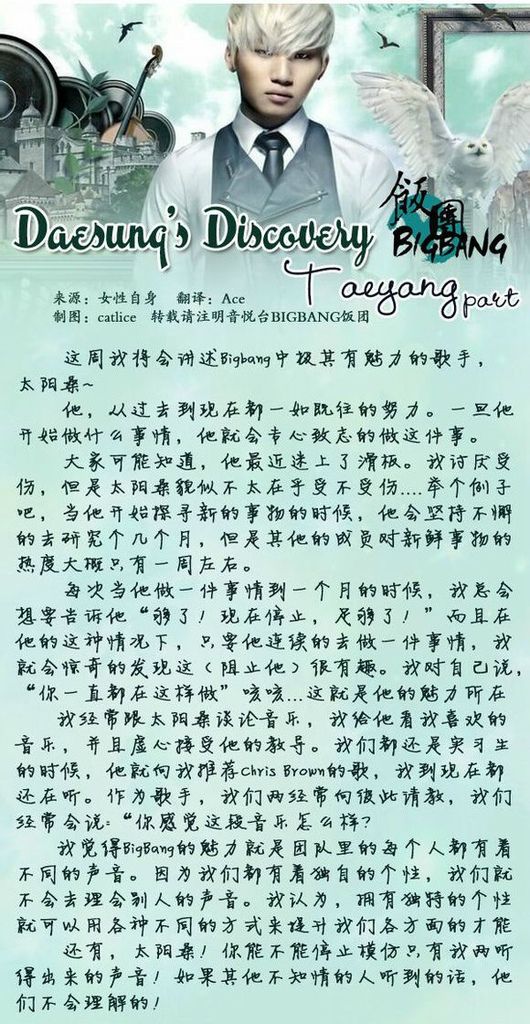 Daesung's Discovery
飯團
BIGBANG
Taeyang part
来源：女性自身　翻译：Ace
制图：catlice　转载请注明音悦台BIGBANG饭团
这周我将会讲述Bigbang中极其有魅力的歌手，
太阳桑~
他，从过去到现在都一如既往的努力。一旦他
开始做什么事情，他就会专心致志的做这件事。
大家可能知道，他最近迷上了滑板。我讨厌受
伤，但是太阳桑貌似不太在乎受不受伤....举个例子
吧，当他开始探寻新的事物的时候，他会坚持不懈
的去研究个几个月，但是其他的成员对新鲜事物的
热度大概只有一周左右。
每次当他做一件事情到一个月的时候，我总会
想要告诉他“够了！现在停止，足够了！”而且在
他的这种情况下，只要他连续的去做一件事情，我
就会惊奇的发现这（阻止他）很有趣。我对自己说，
“你一直都在这样做”咳咳...这就是他的魅力所在
我经常跟太阳桑谈论音乐，我给他看我喜欢的
音乐，并且虚心接受他的教导。我们都还是实习生
的时候，他就向我推荐Chris Brown的歌，我到现在都
还在听。作为歌手，我们两经常向彼此请教，我们
经常会说：“你感觉这段音乐怎么样？
我觉得BigBang的魅力就是团队里的每个人都有着
不同的声音。因为我们都有着独自的个性，我们就
不会去理会别人的声音。我认为，拥有独特的个性
就可以用各种不同的方式来提升我们各方面的才能
还有，太阳桑！你能不能停止模仿只有我两听
得出来的声音！如果其他不知情的人听到的话，他
们不会理解的！